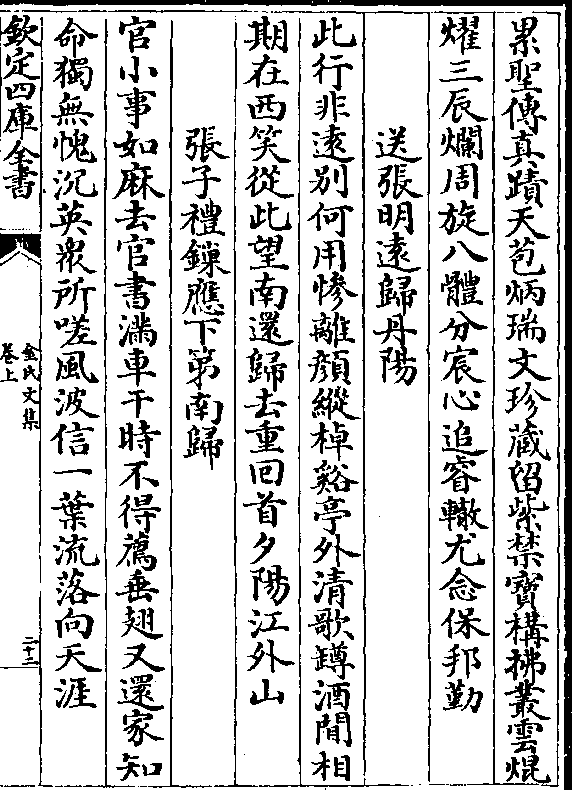 累聖傳真蹟天苞炳瑞文珍藏留紫禁寶構拂叢雲焜
燿三辰爛周旋八體分宸心追睿轍尤念保邦勤
送張明遠歸丹陽
此行非遠別何用慘離顔縱棹谿亭外清歌罇酒間相
期在西笑從此望南還歸去重回首夕陽江外山
張子禮鏁應下第南歸
官小事如麻去官書滿車干時不得薦垂翅又還家知
命獨無愧沉英衆所嗟風波信一葉流落向天涯
欽定四庫全書
金氏文集
卷上
二十二